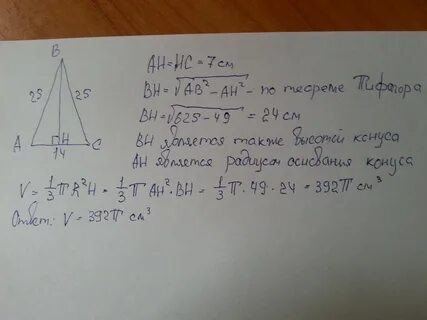 B
25 25
A H C
14
AH = HC = 7 см
BH = √AB² - AH² - по теореме Пифагора
BH = √625 - 49 = 24 см
BH является также высотой конуса
AH является радиусом основания конуса
V = 1/3 π R²H = 1/3 π AH² · BH = 1/3 π · 49 · 24 = 392π см³
Ответ: V = 392π см³